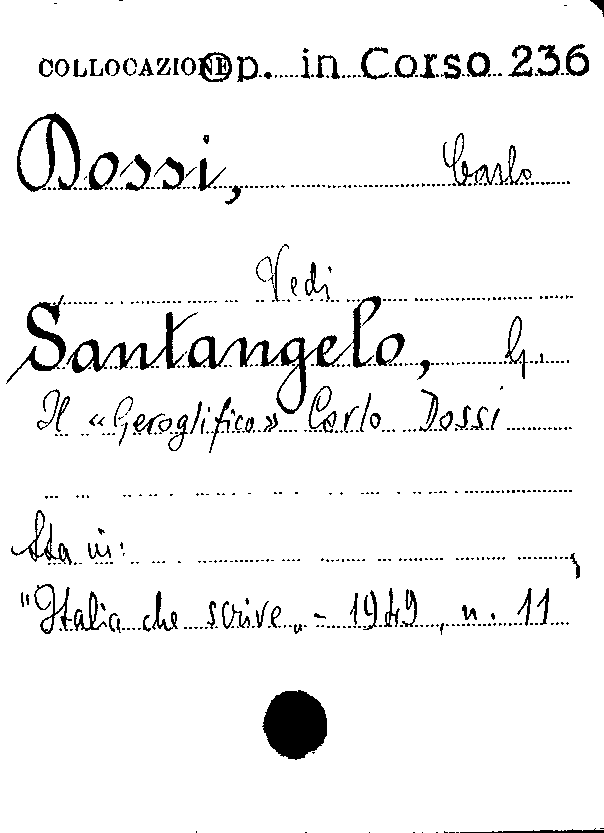 COLLOCAZIONE Op. in Corso 236
Dossi, Carlo
Vedi
Santangelo, G.
Il «Geroglifico» Carlo Dossi
Sta in:
"Italia che scrive„ - 1949, n. 11